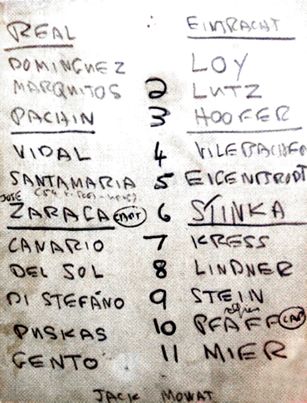 REAL : EINTRACHT
DOMINGUEZ LOY
MARQUITOS 2 LUTZ
PACHIN 3 HOEFER
VIDAL 4 WEILBACHER
SANTAMARIA 5 EIGENBRODT
JOSE
ZARAGA CAPT 6 STINKA
CANARIO 7 KRESS
DEL SOL 8 LINDNER
DI STEFÁNO 9 STEIN
PUSKAS 10 PFAFF CAP
GENTO 11 MIER
JACK MOWAT